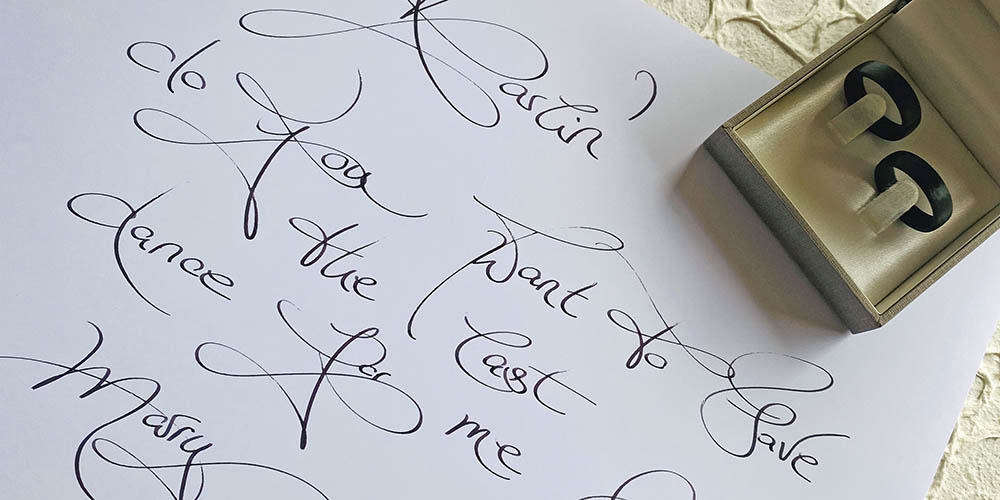 Kastin,
do You Want to Save
the Last
dance for me
Marry